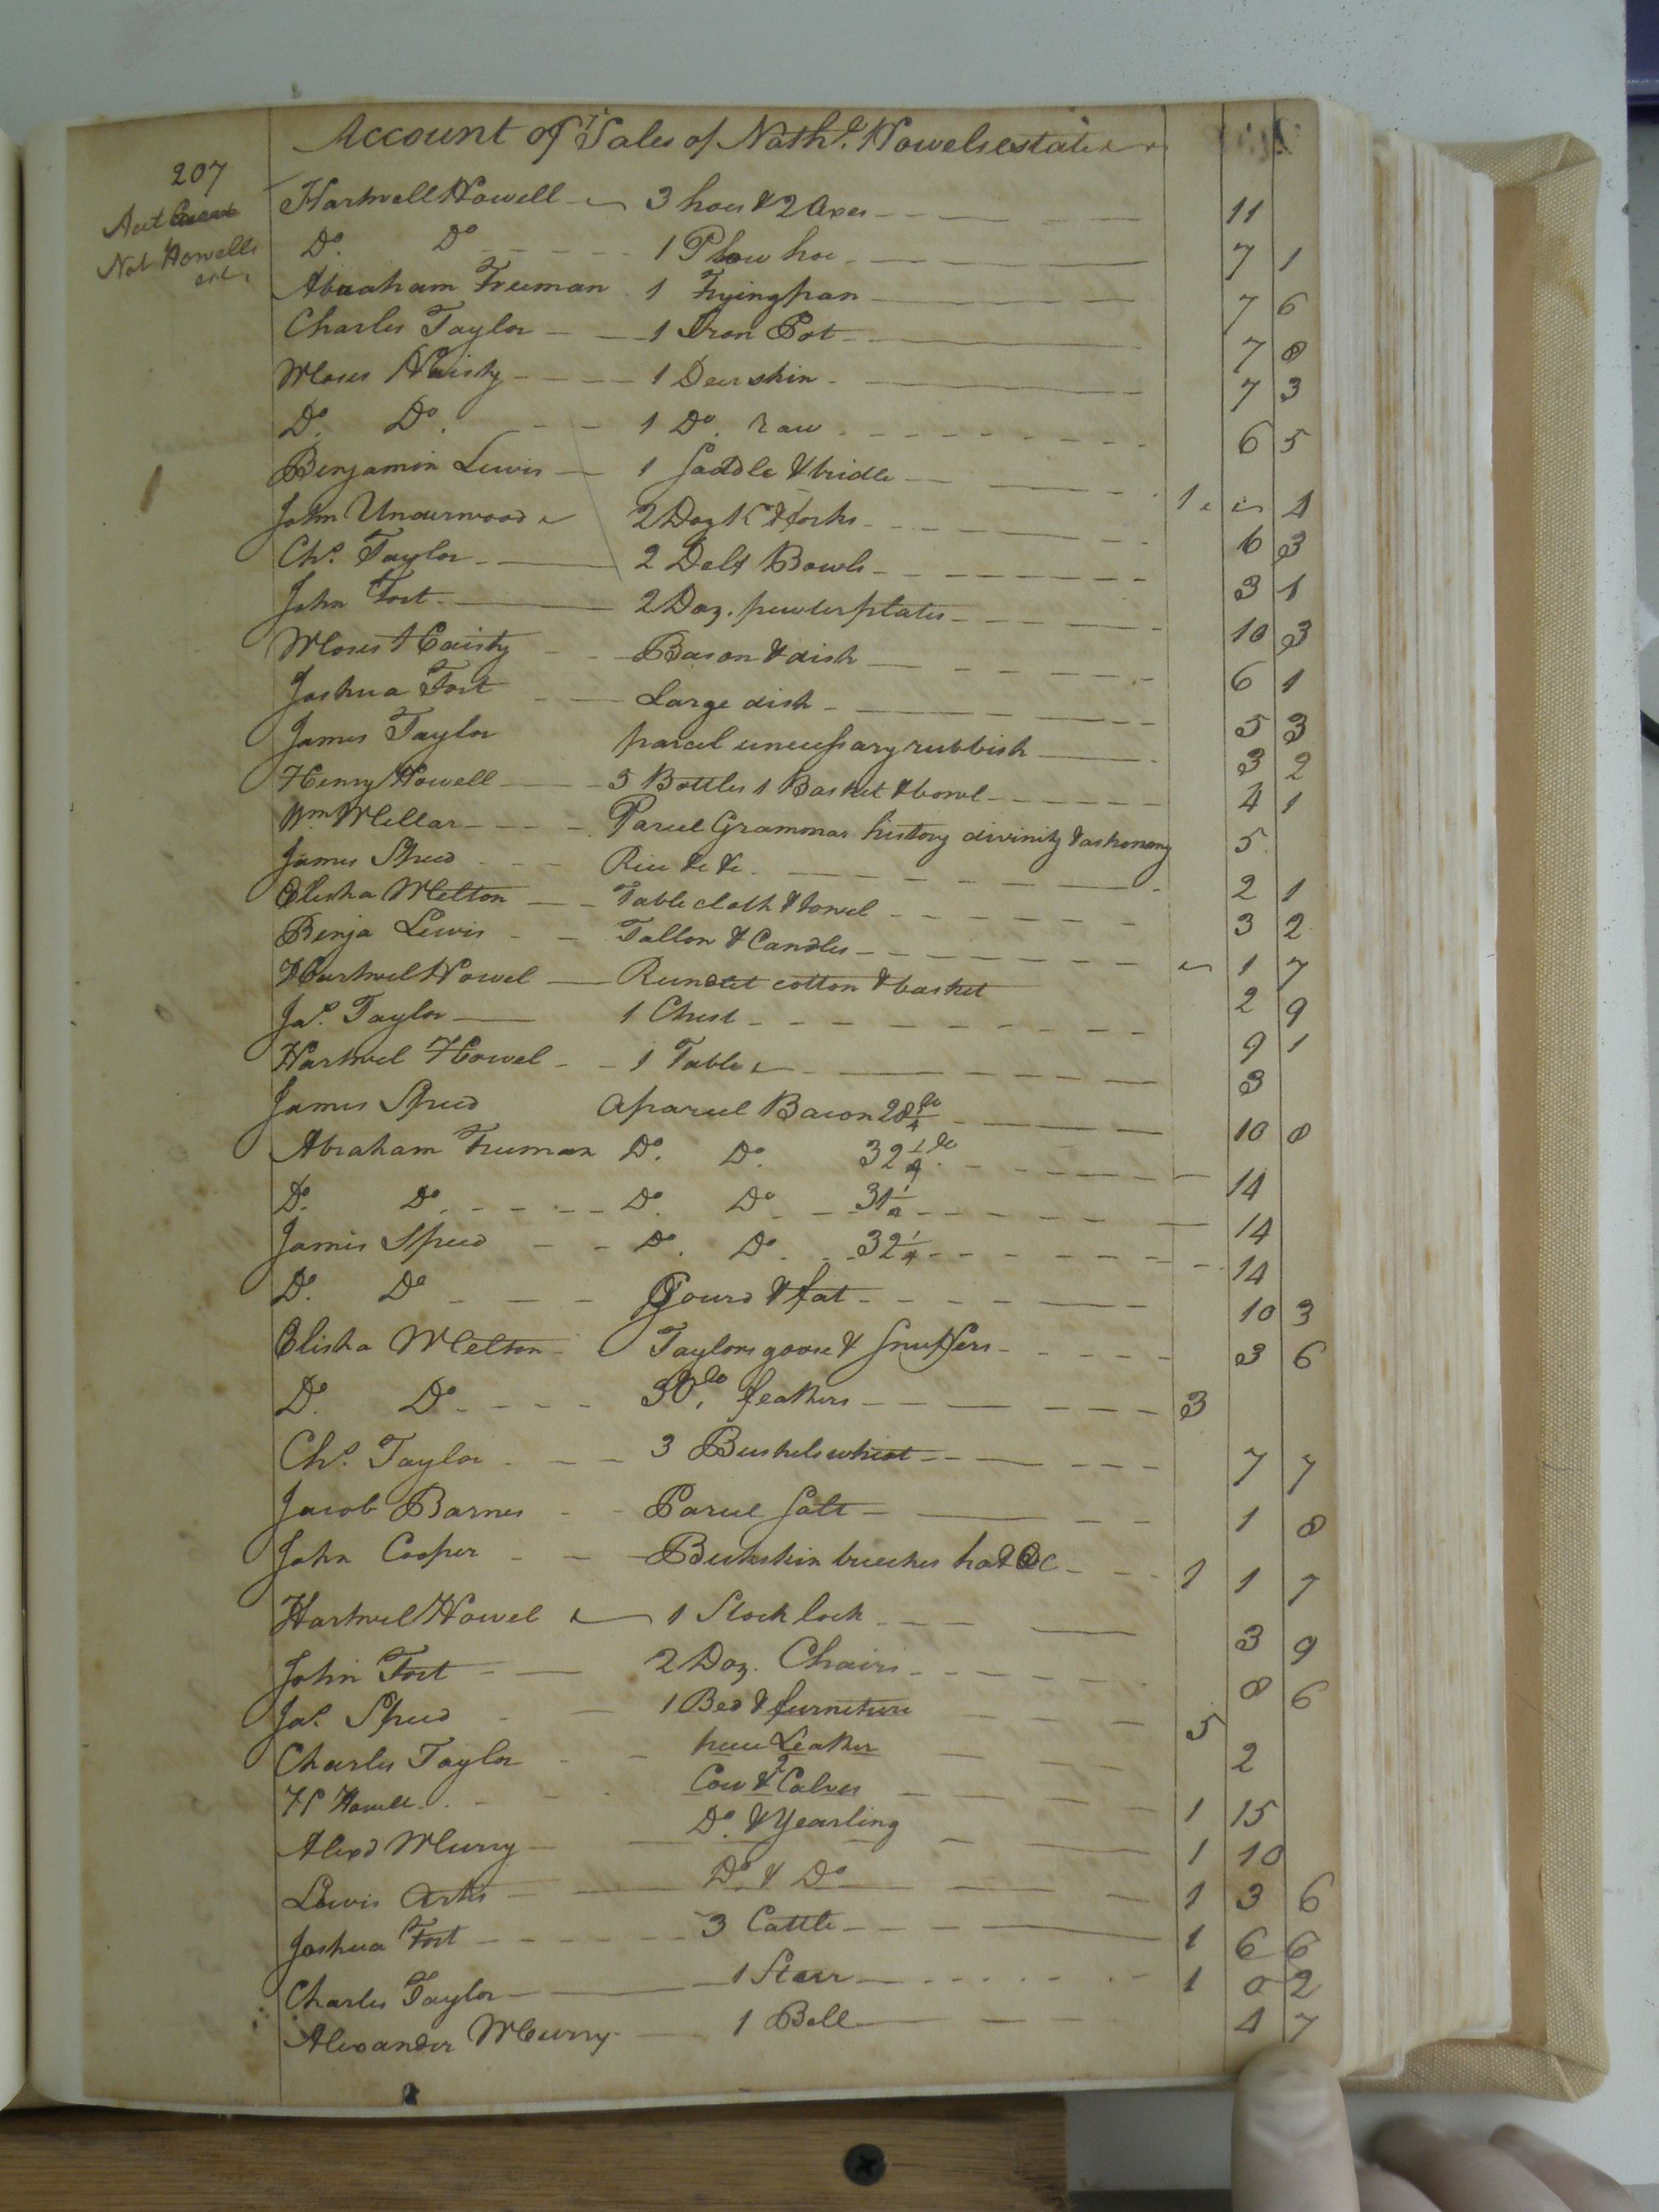 207
Account of Sales of Nath.l Howels estate
Acct
Nat Howells
est.
Hartwell Howell 3 hoes & 2 axes 11
Do. Do 1 Plow hoe 7 1
Abraham Freeman 1 Fryingpan 7 6
Charles Taylor 1 Iron Pot 7 8
Moses 1 Deer skin 7 3
Do. Do. 1 Do. raw 6 5
Benjamin Lewis 1 Saddle & bridle 1 4
John Underwood 2 Doz K & forks 16 3
Chs. Taylor 2 Delf Bowls 3 1
John Fort 2 Doz. pewter plates 10 3
Moses Bason & dish 6 1
Joshua Fort Large dish 5 3
James Taylor parcel unecessary rubbish 3 2
Henry Howell 5 Bottles 1 Basket & bowl 4 1
Wm. Millar Parcel Grammar history divinity & astronomy 5
James Speed Rice &c &c. 2 1
Elisha Melton Table cloth & towel 3 2
Benja Lewis Tallow & Candles 1 7
Hartwel Howel Rundlet cotton & basket 2 9
Jas. Taylor 1 Chest 9 1
Hartwel Howel 1 Table 3
James Speed a parcel Bacon 10 8
Abraham Freeman Do. Do. 32 1/4 lb 14
Do. Do. Do. Do. 14
James Speed Do. Do. 32 1/4 14
Do. Do Gourd & fat 10 3
Elisha Melton Taylors goose & Snuffers 3 6
Do. Do. 30 lb. feathers 3
Chs. Taylor 3 Bushels wheat 7 7
Jacob Barnes Parcel Salt 1 8
John Cooper Buckskin breeches hat &C 1 1 7
Hartwel Howel 1 Stock lock 3 9
John Fort 2 Doz. Chairs 8 6
Jas. Speed 1 Bed & furniture 5
Charles Taylor Leather 2
H Howell Cow & 2 Calves 1 15
Alexd Murry Do. & Yearling 1 10
Lewis Do. & Do 1 3 6
Joshua Fort 3 Cattle 1 6 6
Charles Taylor 1 Steer 1 0 2
Alexander Murry 1 Bell 4 7